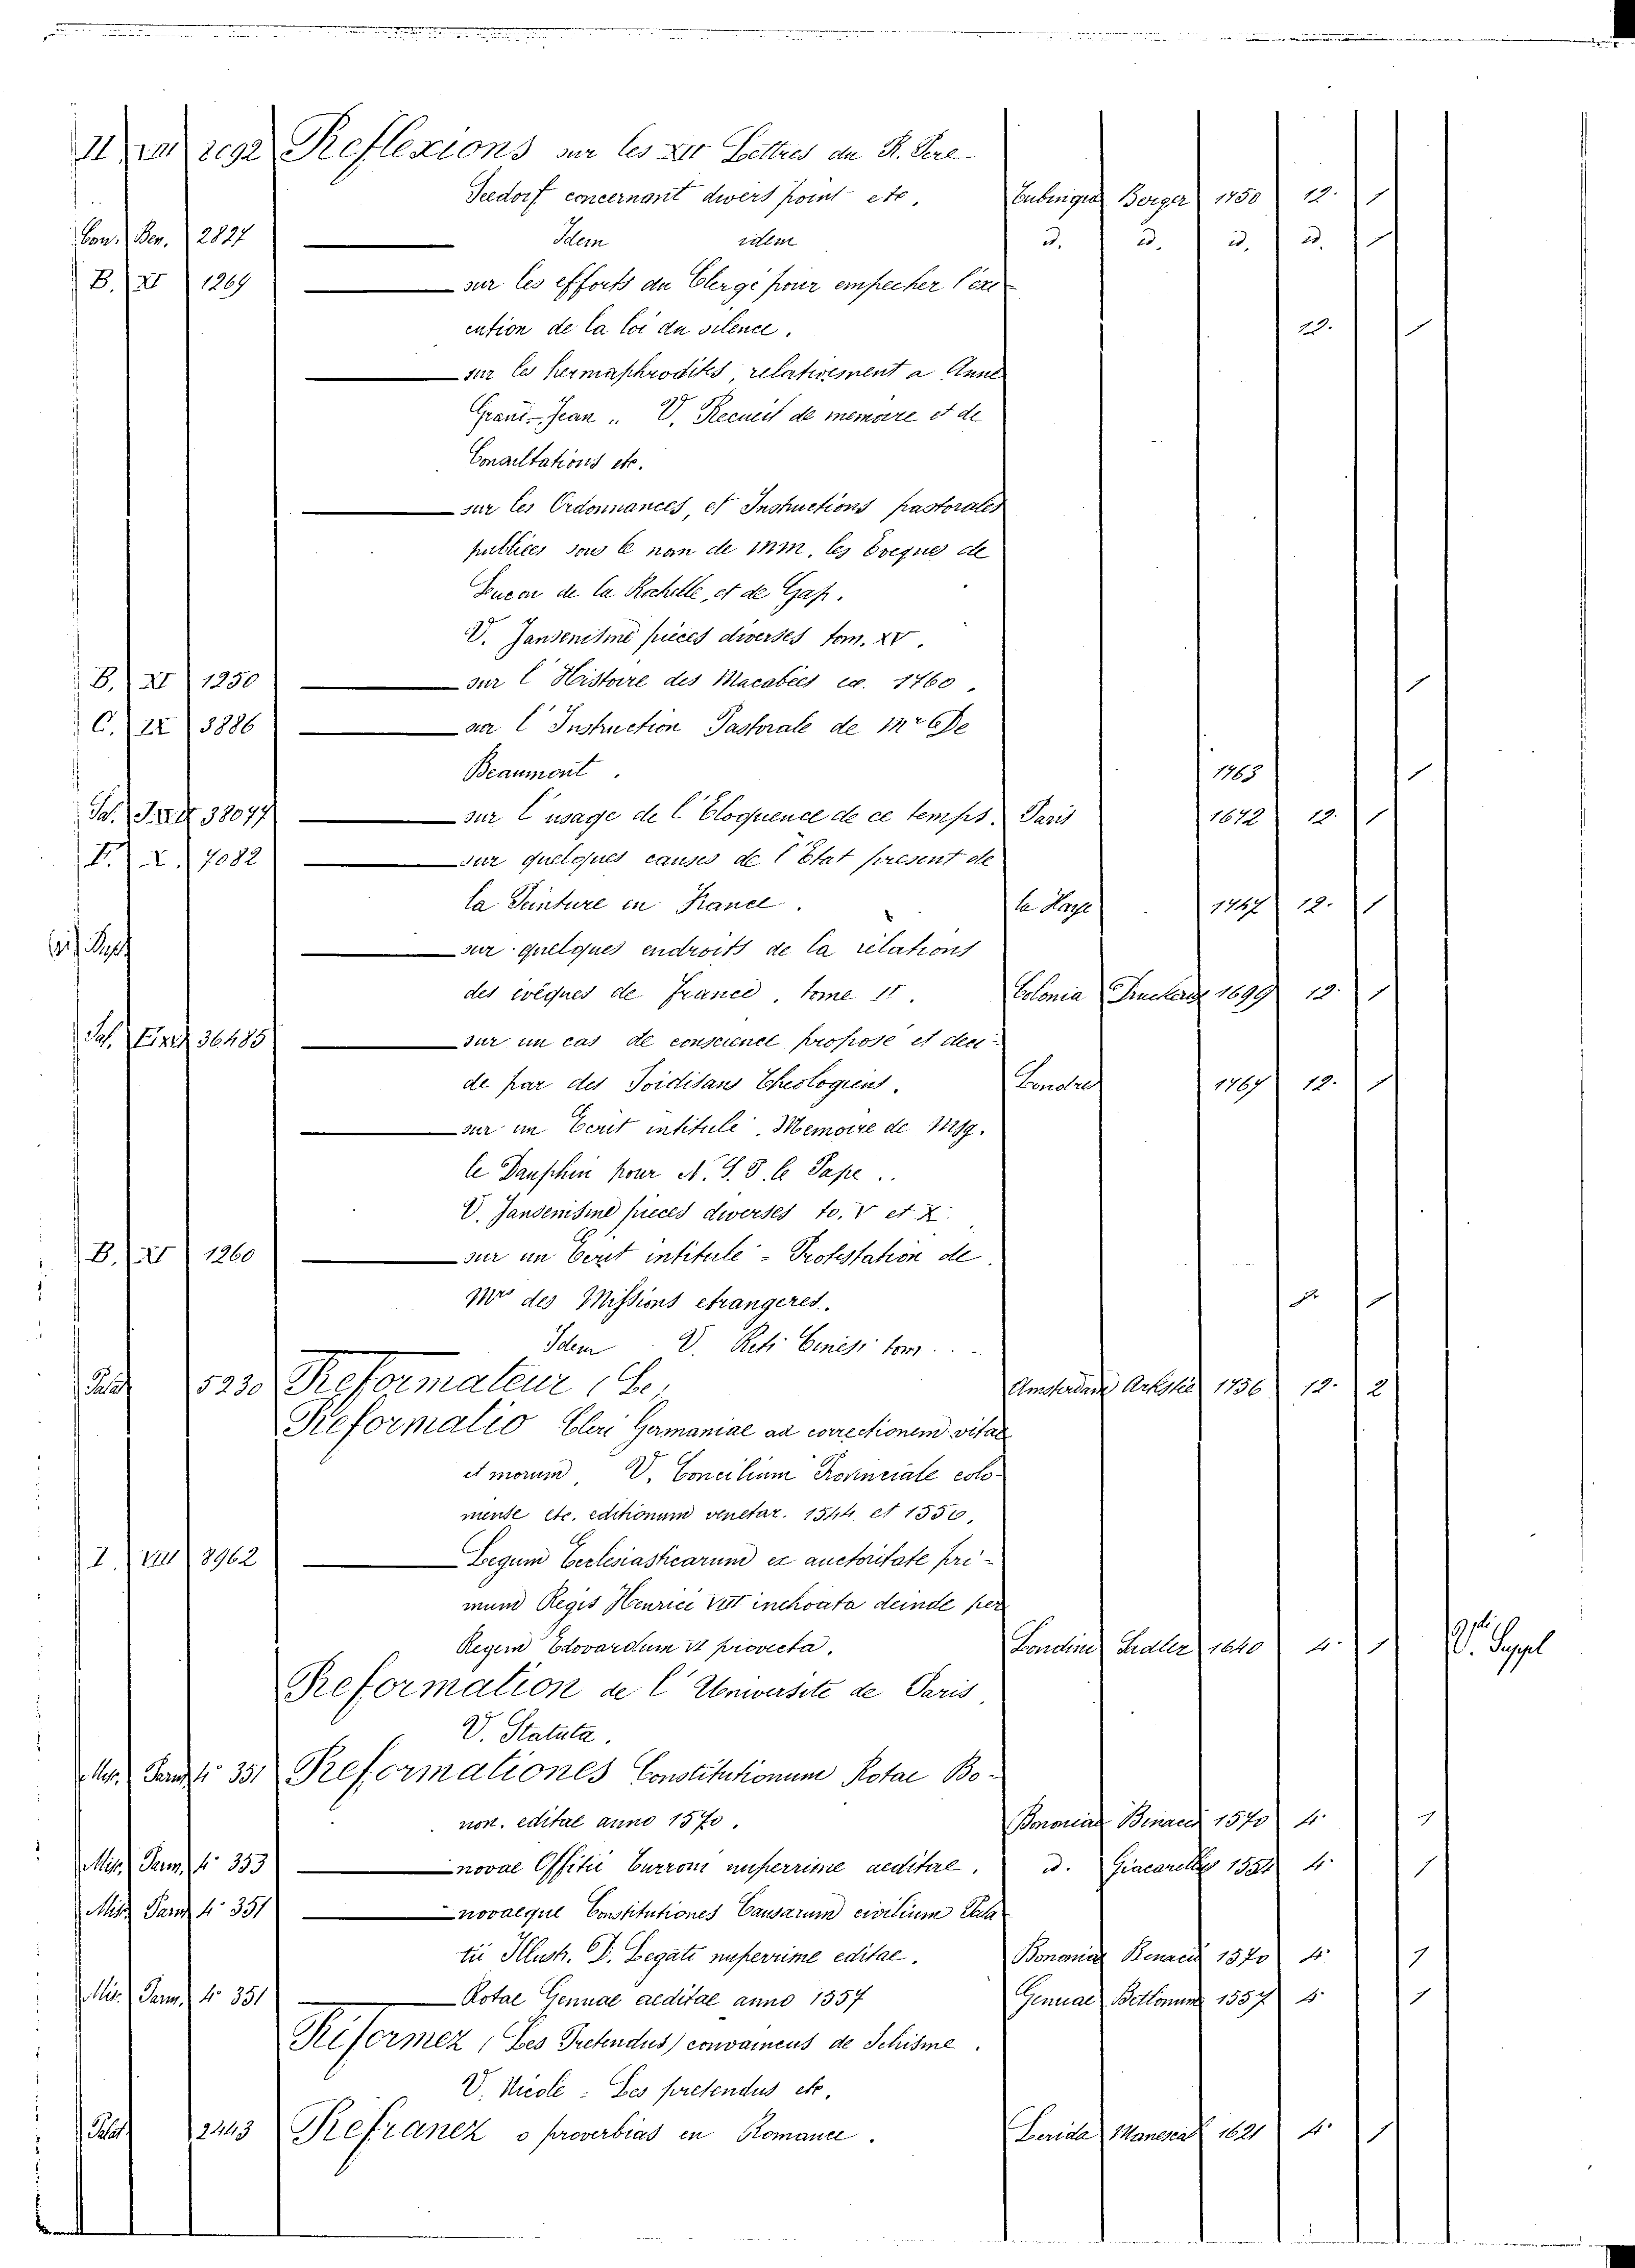 II VIII 2692 Reflexions sur les XII Lettres du R. Pere
Seedorf concernant divers point etc. Tubingia Berger 1750 12. 1
Con. Ben. 2827 Idem idem id. id. id. id. 1
B. XI 1269 sur les efforts du Clergé pour empecher l'exe
cution de la loi du silence. 12. 1
sur les hermaphrodites, relativement a Anne
Grand-Jean „ V. Recueil de memoire et de
Consultations etc.
sur les Ordonnances, et Instructions pastorales
publiees sous le nom de MM. les Eveques de
Lucon de la Rochelle, et de Gap.
V. Jansenisme pièces diverses tom. XV.
B. XI 1250 sur l'Histoire des Macabées ec. 1760. 1
C. IX 3886 sur l'Instruction Pastorale de Mr De
Beaumont. 1763 1
38077 sur l'usage de l'Eloquence de ce temps. Paris 1672 12. 1
X. 7082 sur quelques causes de l'Etat present de
la Peinture en France. la Haye 1747 12. 1
sur quelques endroits de la relations
des evêques de France, tome II. Colonia 1699 12. 1
36485 sur un cas de conscience propose et deci-
de par des Theologiens. Londres 1767 12. 1
sur un Ecrit intitulé. Memoire de Msg.
le Dauphin pour N. S. P. le Pape..
V. Jansenisme pieces diverses to. V et X.
B. XI 1260 sur un Ecrit intitulé - Protestation de
Mrs des Missions etrangeres. 1
Idem V. Reti Cinesi tom...
Palat 5230 Reformateur (Le) Amsterdam Arkstée 1756 12. 2
Reformatio Cleri Germaniae ad correctionem vitae
et morum, V. Concilium Provinciale colo-
niense etc. editionum venetar. 1544 et 1550.
I. VIII 8962 Legum Ecclesiasticarum ex auctoritate pri-
mum Regis Henrici VIII inchoata deinde per
Regem Edovardum VI provecta. Londini 1640 4. 1 V. Suppl
Reformation de l'Université de Paris,
V. Statuta.
Mis. Parm. 4° 351 Reformationes Constitutionum Rotae Bo-
non. editae anno 1570. Bononiae Benacci 1570 4. 1
Mis. Parm. 4° 353 novae Offitii Curroni nuperrime aeditae. id. Giacarelli 4. 1
Mis. Parm. 4° 351 novaeque Constitutiones Causarum civilium Pala
tii Illustr. D. Legati nuperrime editae. Bononiae Benacci 1570 4. 1
Mis. Parm. 4° 351 Rotae Genuae aeditae anno 1557 Genuae Bellonum 1557 4. 1
Reformez (Les Pretendus) convaincus de Schisme.
V. Nicole - Les pretendus etc.
Palat 2443 Refranez o proverbias en Romance. Lerida Manescal 1621 4. 1